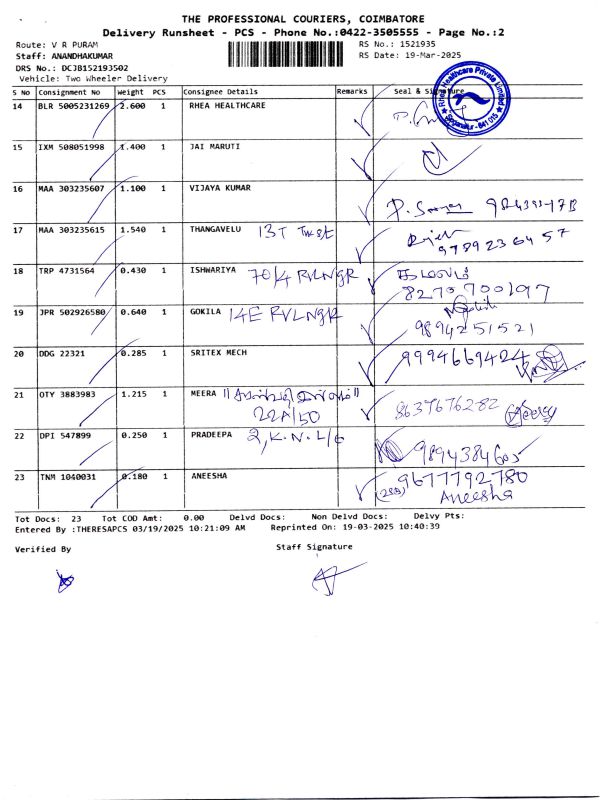 THE PROFESSIONAL COURIERS, COIMBATORE
Delivery Runsheet - PCS - Phone No.:0422-3505555 - Page No.:2
Route: V R PURAM RS No.: 1521935
Staff: ANANDHAKUMAR RS Date: 19-Mar-2025
DRS No.: DCJB152193502
Vehicle: Two Wheeler Delivery
S No Consignment No Weight PCS Consignee Details Remarks Seal & Signature
Rhea Healthcare Private Limited
Singanallur - 641 015
14 BLR 5005231269 2.600 1 RHEA HEALTHCARE
15 IXM 508051998 1.400 1 JAI MARUTI
16 MAA 303235607 1.100 1 VIJAYA KUMAR
17 MAA 303235615 1.540 1 THANGAVELU 13T
9789236457
18 TRP 4731564 0.430 1 ISHWARIYA 70/4 RVLNGR கமலம்
8270700197
19 JPR 502926580 0.640 1 GOKILA 14E RVLNGR
9894251521
20 DDG 22321 0.285 1 SRITEX MECH 9994669424
21 OTY 3883983 1.215 1 MEERA
22A/50 8637676282
22 DPI 547899 0.250 1 PRADEEPA 2, K.N.L/6
9894384605
23 TNM 1040031 0.180 1 ANEESHA 9677792780
Aneesha
Tot Docs: 23 Tot COD Amt: 0.00 Delvd Docs: Non Delvd Docs: Delvy Pts:
Entered By :THERESAPCS 03/19/2025 10:21:09 AM Reprinted On: 19-03-2025 10:40:39
Verified By Staff Signature